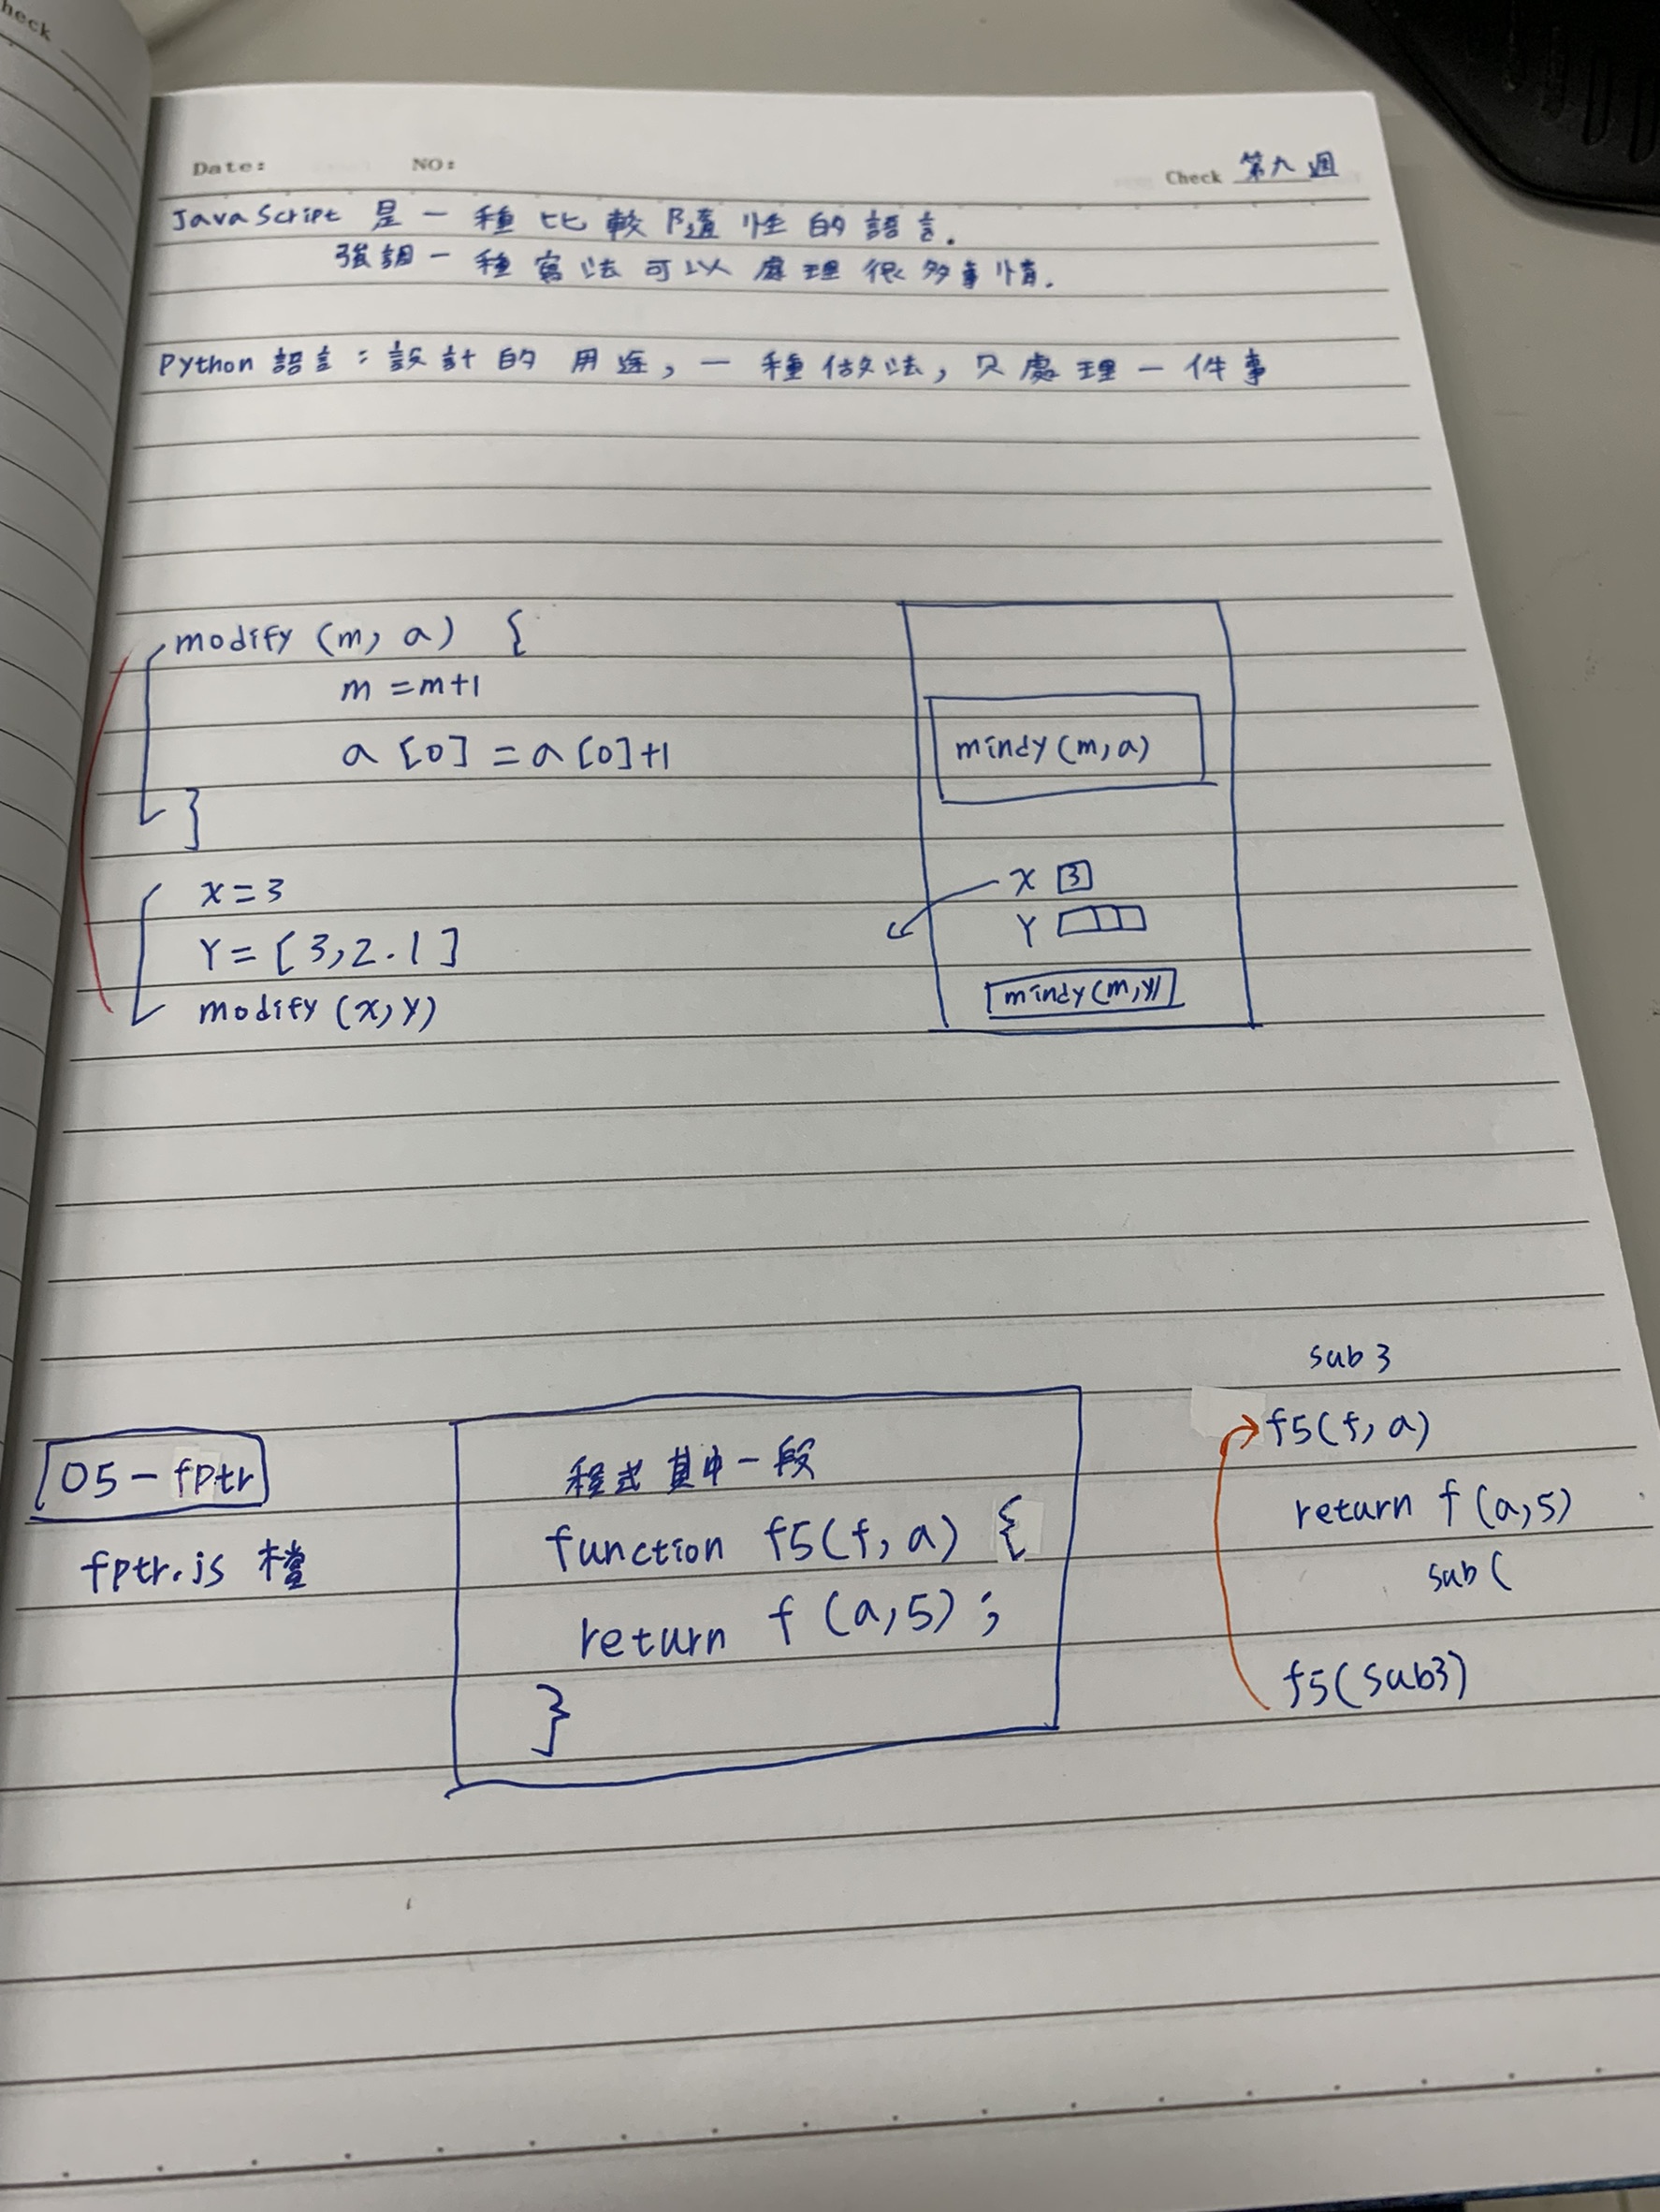 heck
Date: NO: Check 第九週
JavaScript 是一種比較隨性的語言.
強調一種寫法可以處理很多事情.
Python 語言:設計的用途,一種做法,只處理一件事
modify (m, a) {
m = m+1
a [0] = a [0]+1
}
x = 3
Y = [ 3,2.1 ]
modify (x,y)
mindy (m,a)
x 3
Y
mindy(m,y)
05-fptr
fptr.js 檔
程式其中一段
function f5(f, a) {
return f (a,5) ;
}
sub 3
f5(f, a)
return f (a,5)
sub (
f5(sub3)